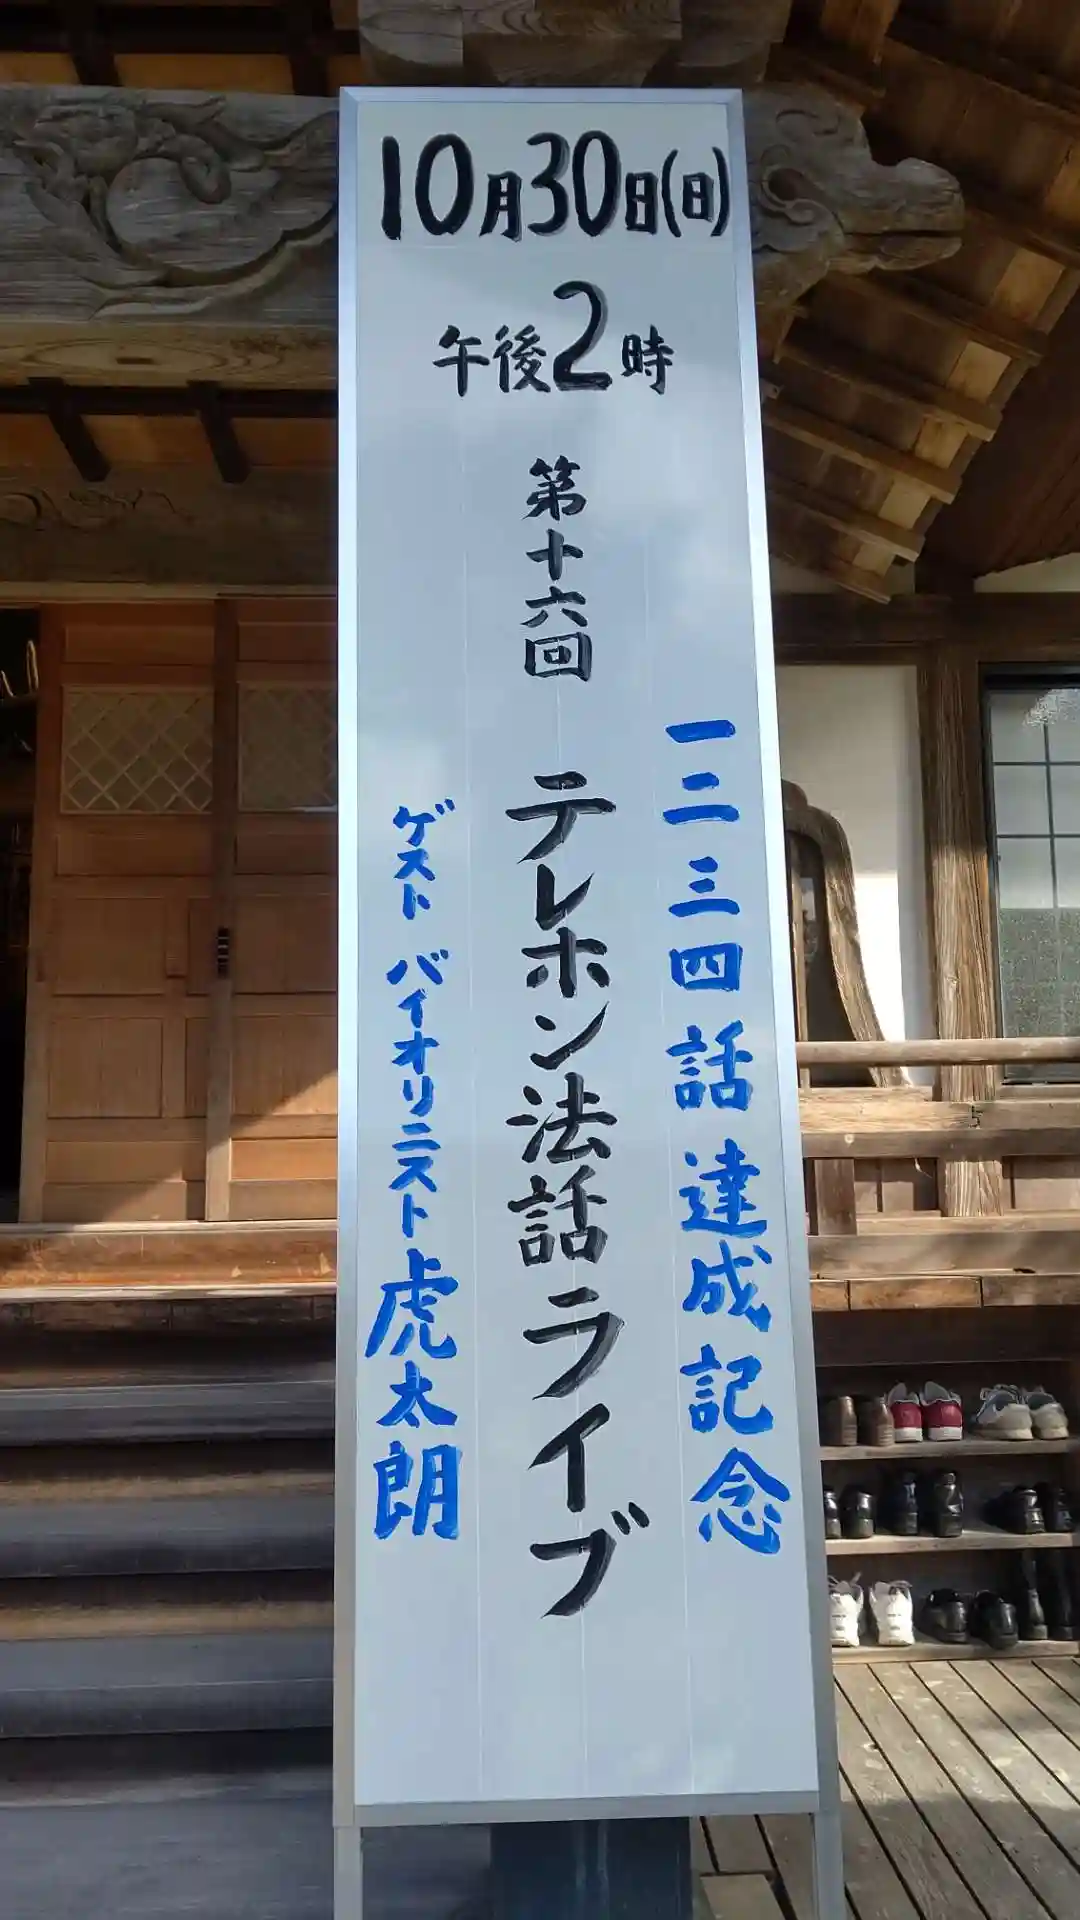 10月30日(日)
午後2時
一二三四話 達成記念
第十六回 テレホン法話ライブ
ゲスト バイオリニスト 虎太朗